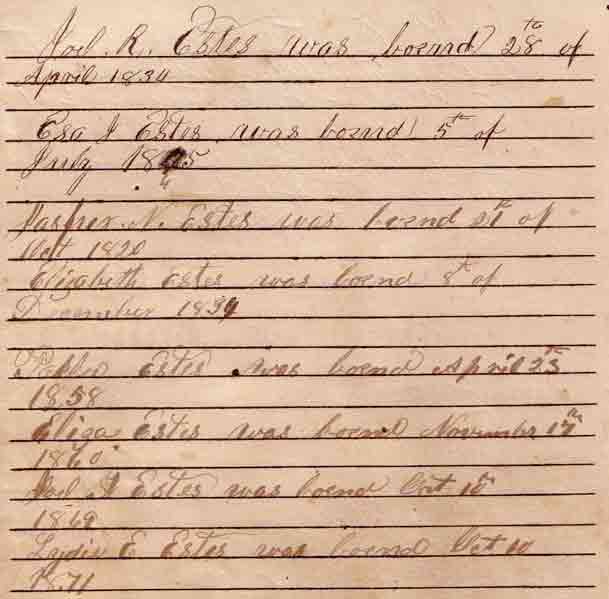 Joel R. Estes was boend 28th of
April 1834
Esa J Estes was boend 5th of
July 1845
N. Estes was boend of
Oct 1820
Elizabeth Estes was boend 8th of
December 1839
Estes was boend April 25
1858
Eliza Estes was boend November 17th
1860
Joel J Estes was boend Oct 10
1869
Lydia E Estes was boend Oct 10
1871